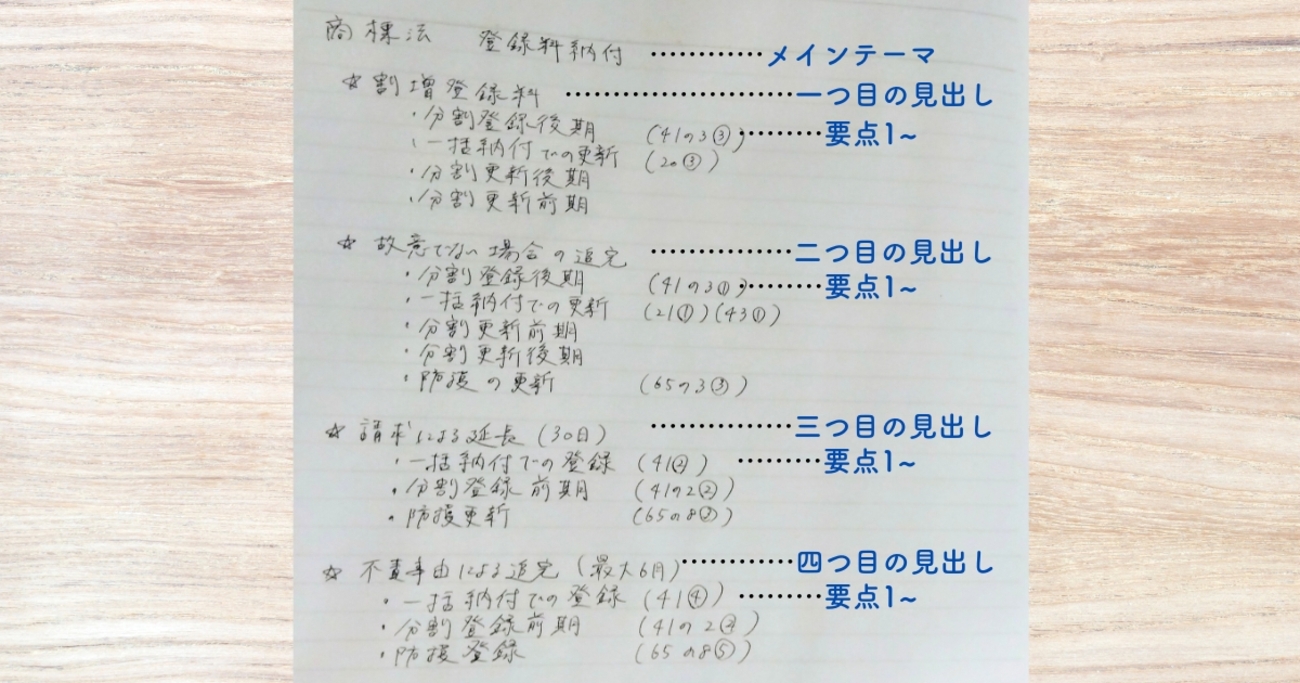 商標法　登録料納付 …………メインテーマ
☆割増登録料 ……………………一つ目の見出し
・分割登録後期　(41の3③) ………要点1~
・一括納付での更新　(20③)
・分割更新後期
・分割更新前期
☆故意でない場合の追完 ……………二つ目の見出し
・分割登録後期　(41の3①) ………要点1~
・一括納付での更新　(21①)(43①)
・分割更新前期
・分割更新後期
・防護の更新　(65の3③)
☆請求による延長(30日) ……………三つ目の見出し
・一括納付での登録　(41②) ………要点1~
・分割登録前期　(41の2②)
・防護更新　(65の8③)
☆不責事由による追完(最大6月) …………四つ目の見出し
・一括納付での登録　(41④) ………要点1~
・分割登録前期　(41の2④)
・防護登録　(65の8⑤)